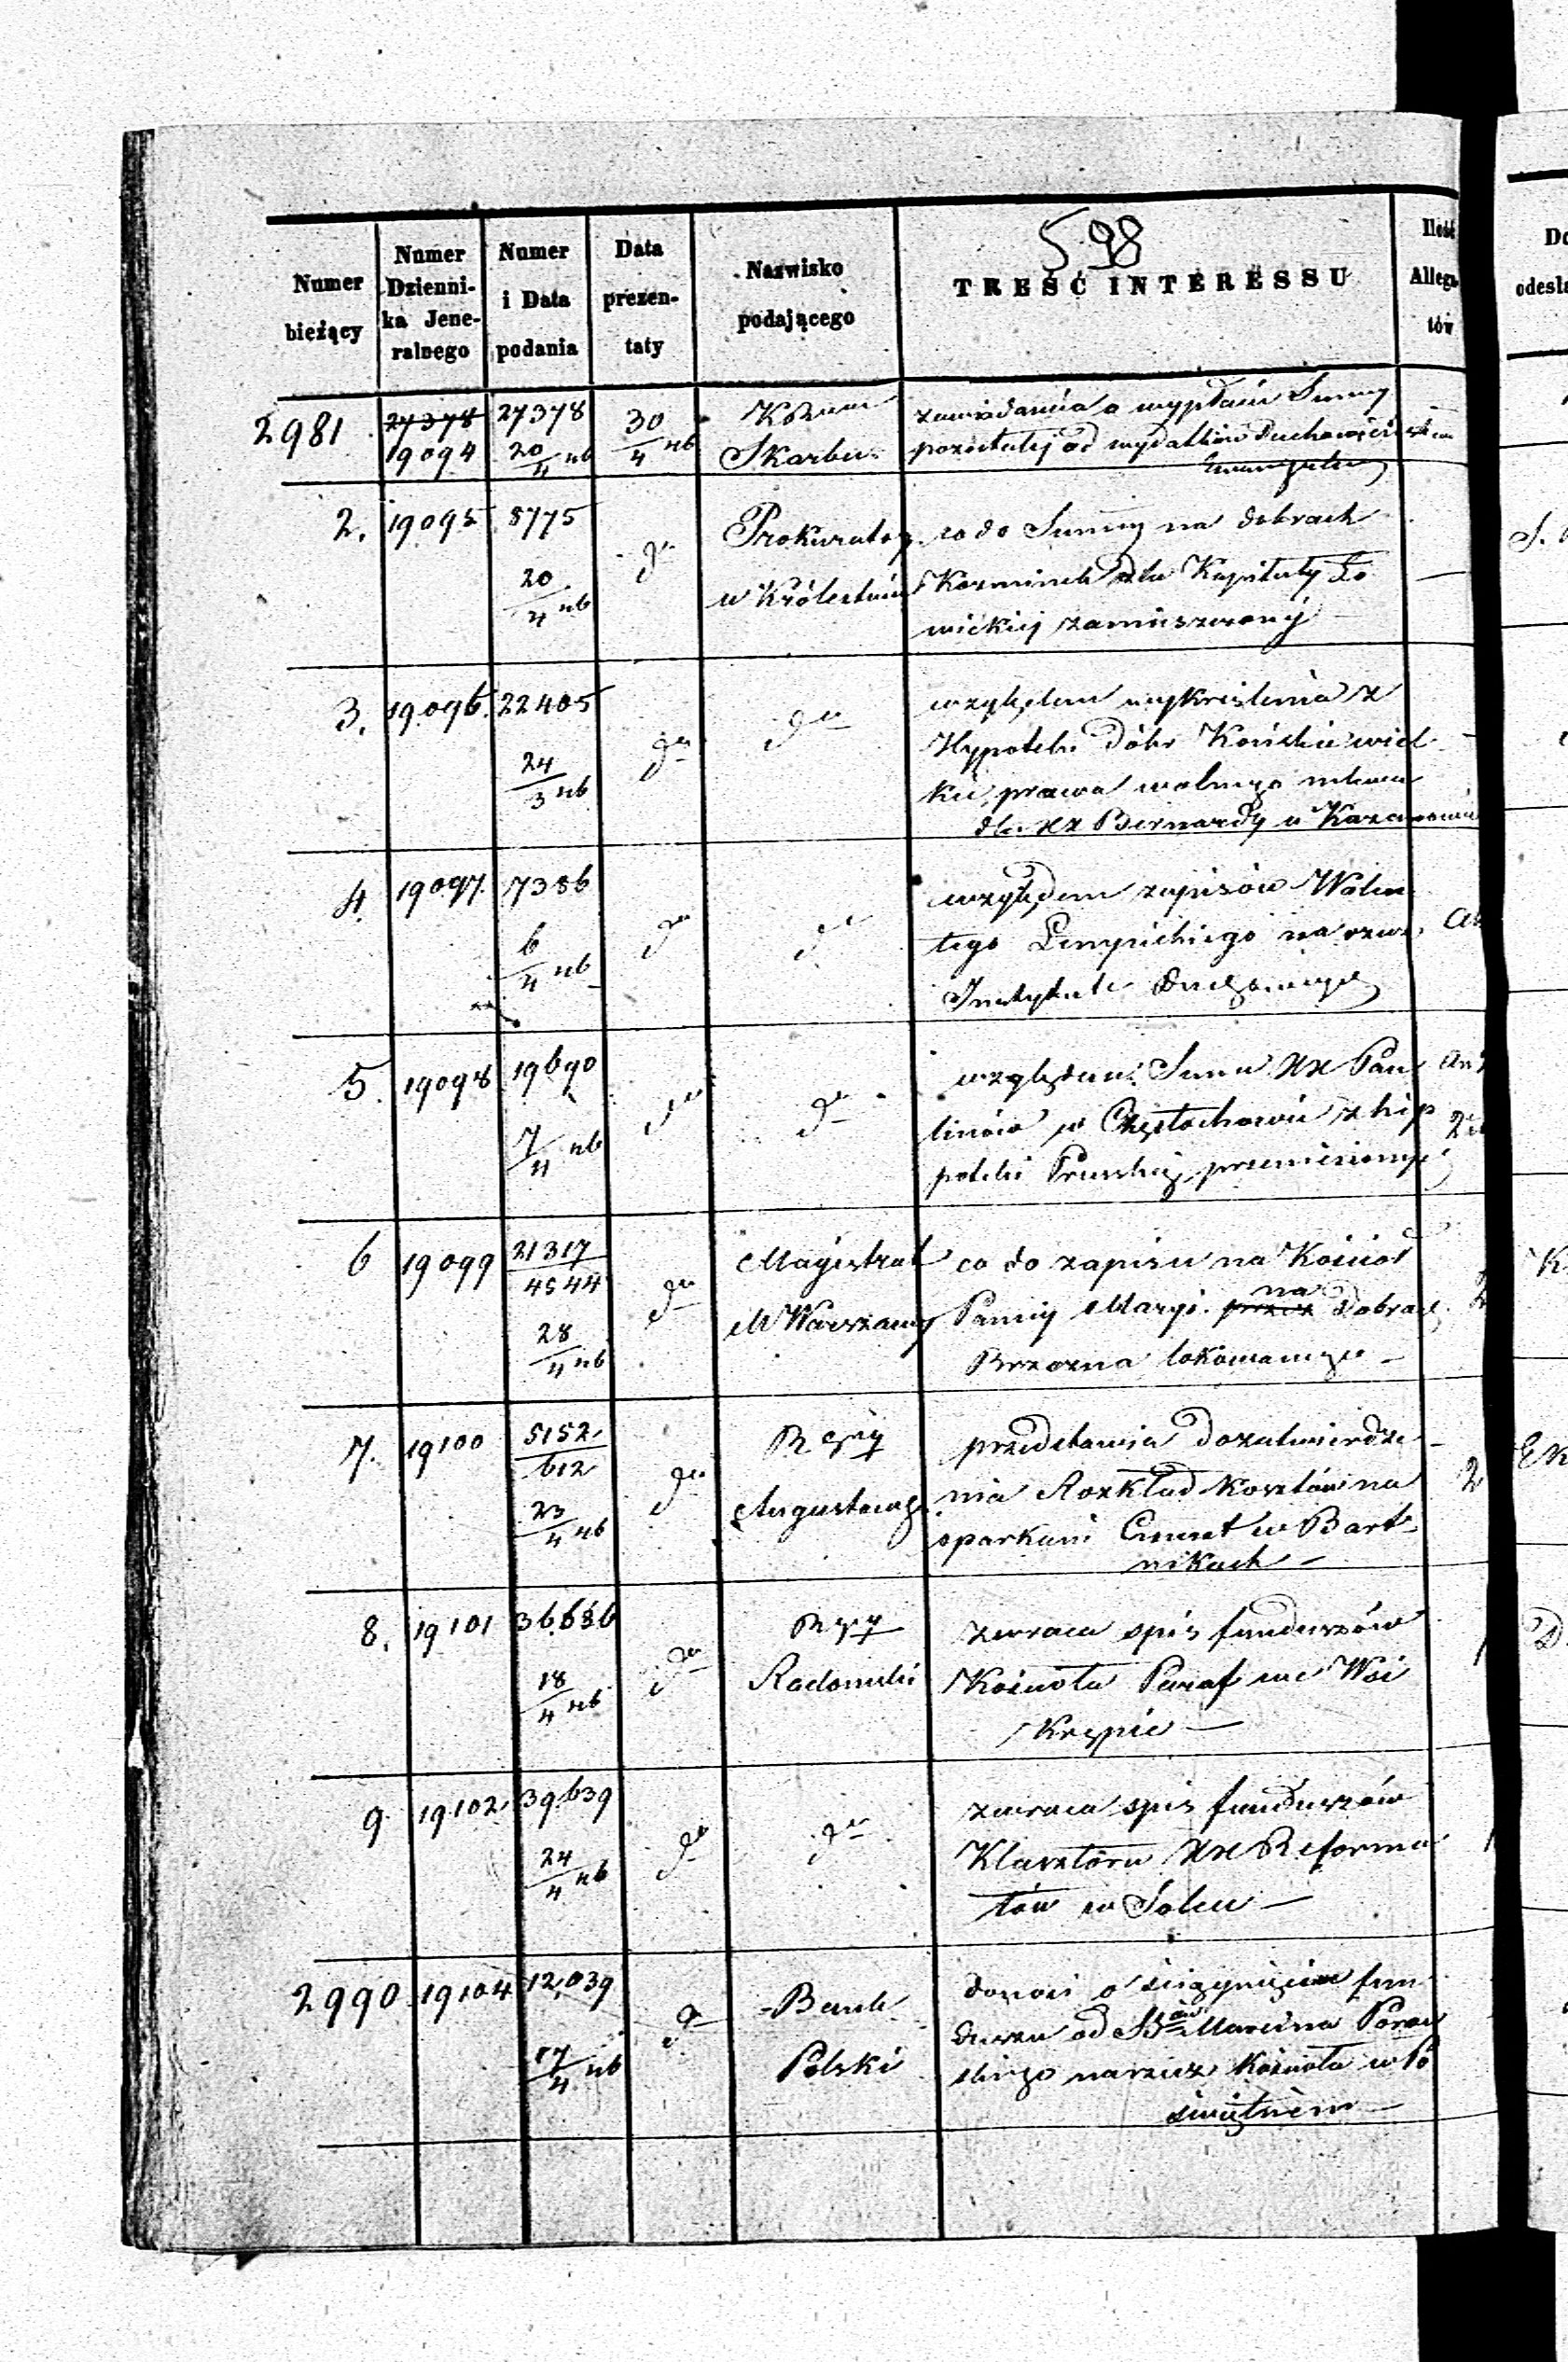 598
Numer bieżący
Numer Dzienni-ka Jene-ralnego
Numer i Data podania
Data prezen-taty
Nazwisko podającego
TREŚĆ INTERESSU
Ilość Allega tów
2981 27378 19094 27378 20/4 nb 30/4 nb Skarbu
zawiadamia o wypłacie Summy
pozostałej od wydatków Duchowieństwa
2. 19095 8775 20/4 nb do Prokurator w Królestwie
co do Summy na dobrach
Kozminek dla Kapituły Ło
wickiej zamieszczonej
3. 19096 22405 24/3 nb do do
względem wykreślenia z
Hypoteki dóbr Końskie wiel
kie, prawa wolnego mlewa
dla XX Bernardy w
4. 19097 7386 6/4 nb do do
względem zapisów Walen
tego na rzecz
Instytuta
5. 19098 19690 7/4 nb do do
względem Summ XX Pau
linów w Częstochowie z hip
poteki Pruskiej przeniesionych
6 19099 21317/4544 28/4 nb do Magistrat M Warszawy
co do zapisu na Kościoł
Panny Maryi przez na Dobrach
Brzozna lokowanego
7. 19100 5152/612 23/4 nb do Augustowsk
przedstawia do zatwierdze
nia Rozkład kosztów na
oparkani Cment w Bart
nikach
8. 19101 36,686 18/4 nb do Radomski
zwraca spis funduszów
Kościoła Paraf we Wsi
Krępie
9. 19102 39639 24/4 nb do do
zwraca spis funduszów
Klasztoru XX Reforma
tów w Solcu
2990 19104 12,039 17/4 nb do Bank Polski
donosi o ściągnięciu fun
duszu od Marcina
skiego na rzecz Kościoła w